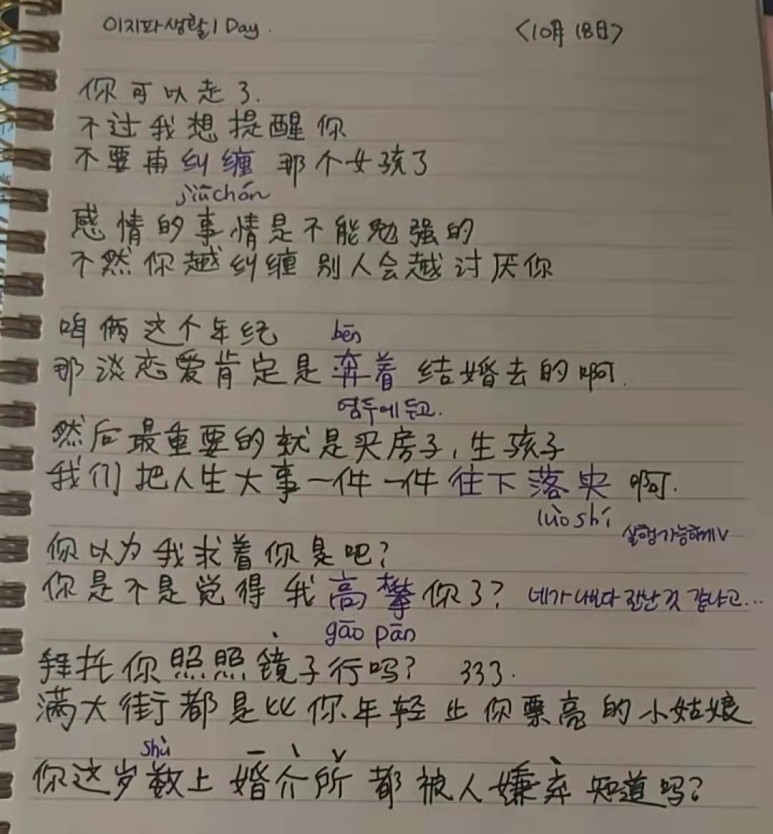 이지파생활 1 Day. <10月 18日>
你可以走了.
不过我想提醒你
不要再纠缠 那个女孩了
jiūchán
感情的事情是不能勉强的
不然你越纠缠 别人会越讨厌你
咱俩这个年纪 bēn
那谈恋爱肯定是奔着 结婚去的啊.
염두에 두고.
然后最重要的就是买房子, 生孩子
我们把人生大事一件一件往下落实 啊.
luò shí 실행가능하게V
你以为我求着你是吧?
你是不是觉得我高攀你了? 네가 나보다 잘난 것 같냐고...
gāo pān
拜托你照照镜子行吗? 333.
满大街都是比你年轻比你漂亮的小姑娘
shù
你这岁数上婚介所都被人嫌弃知道吗?